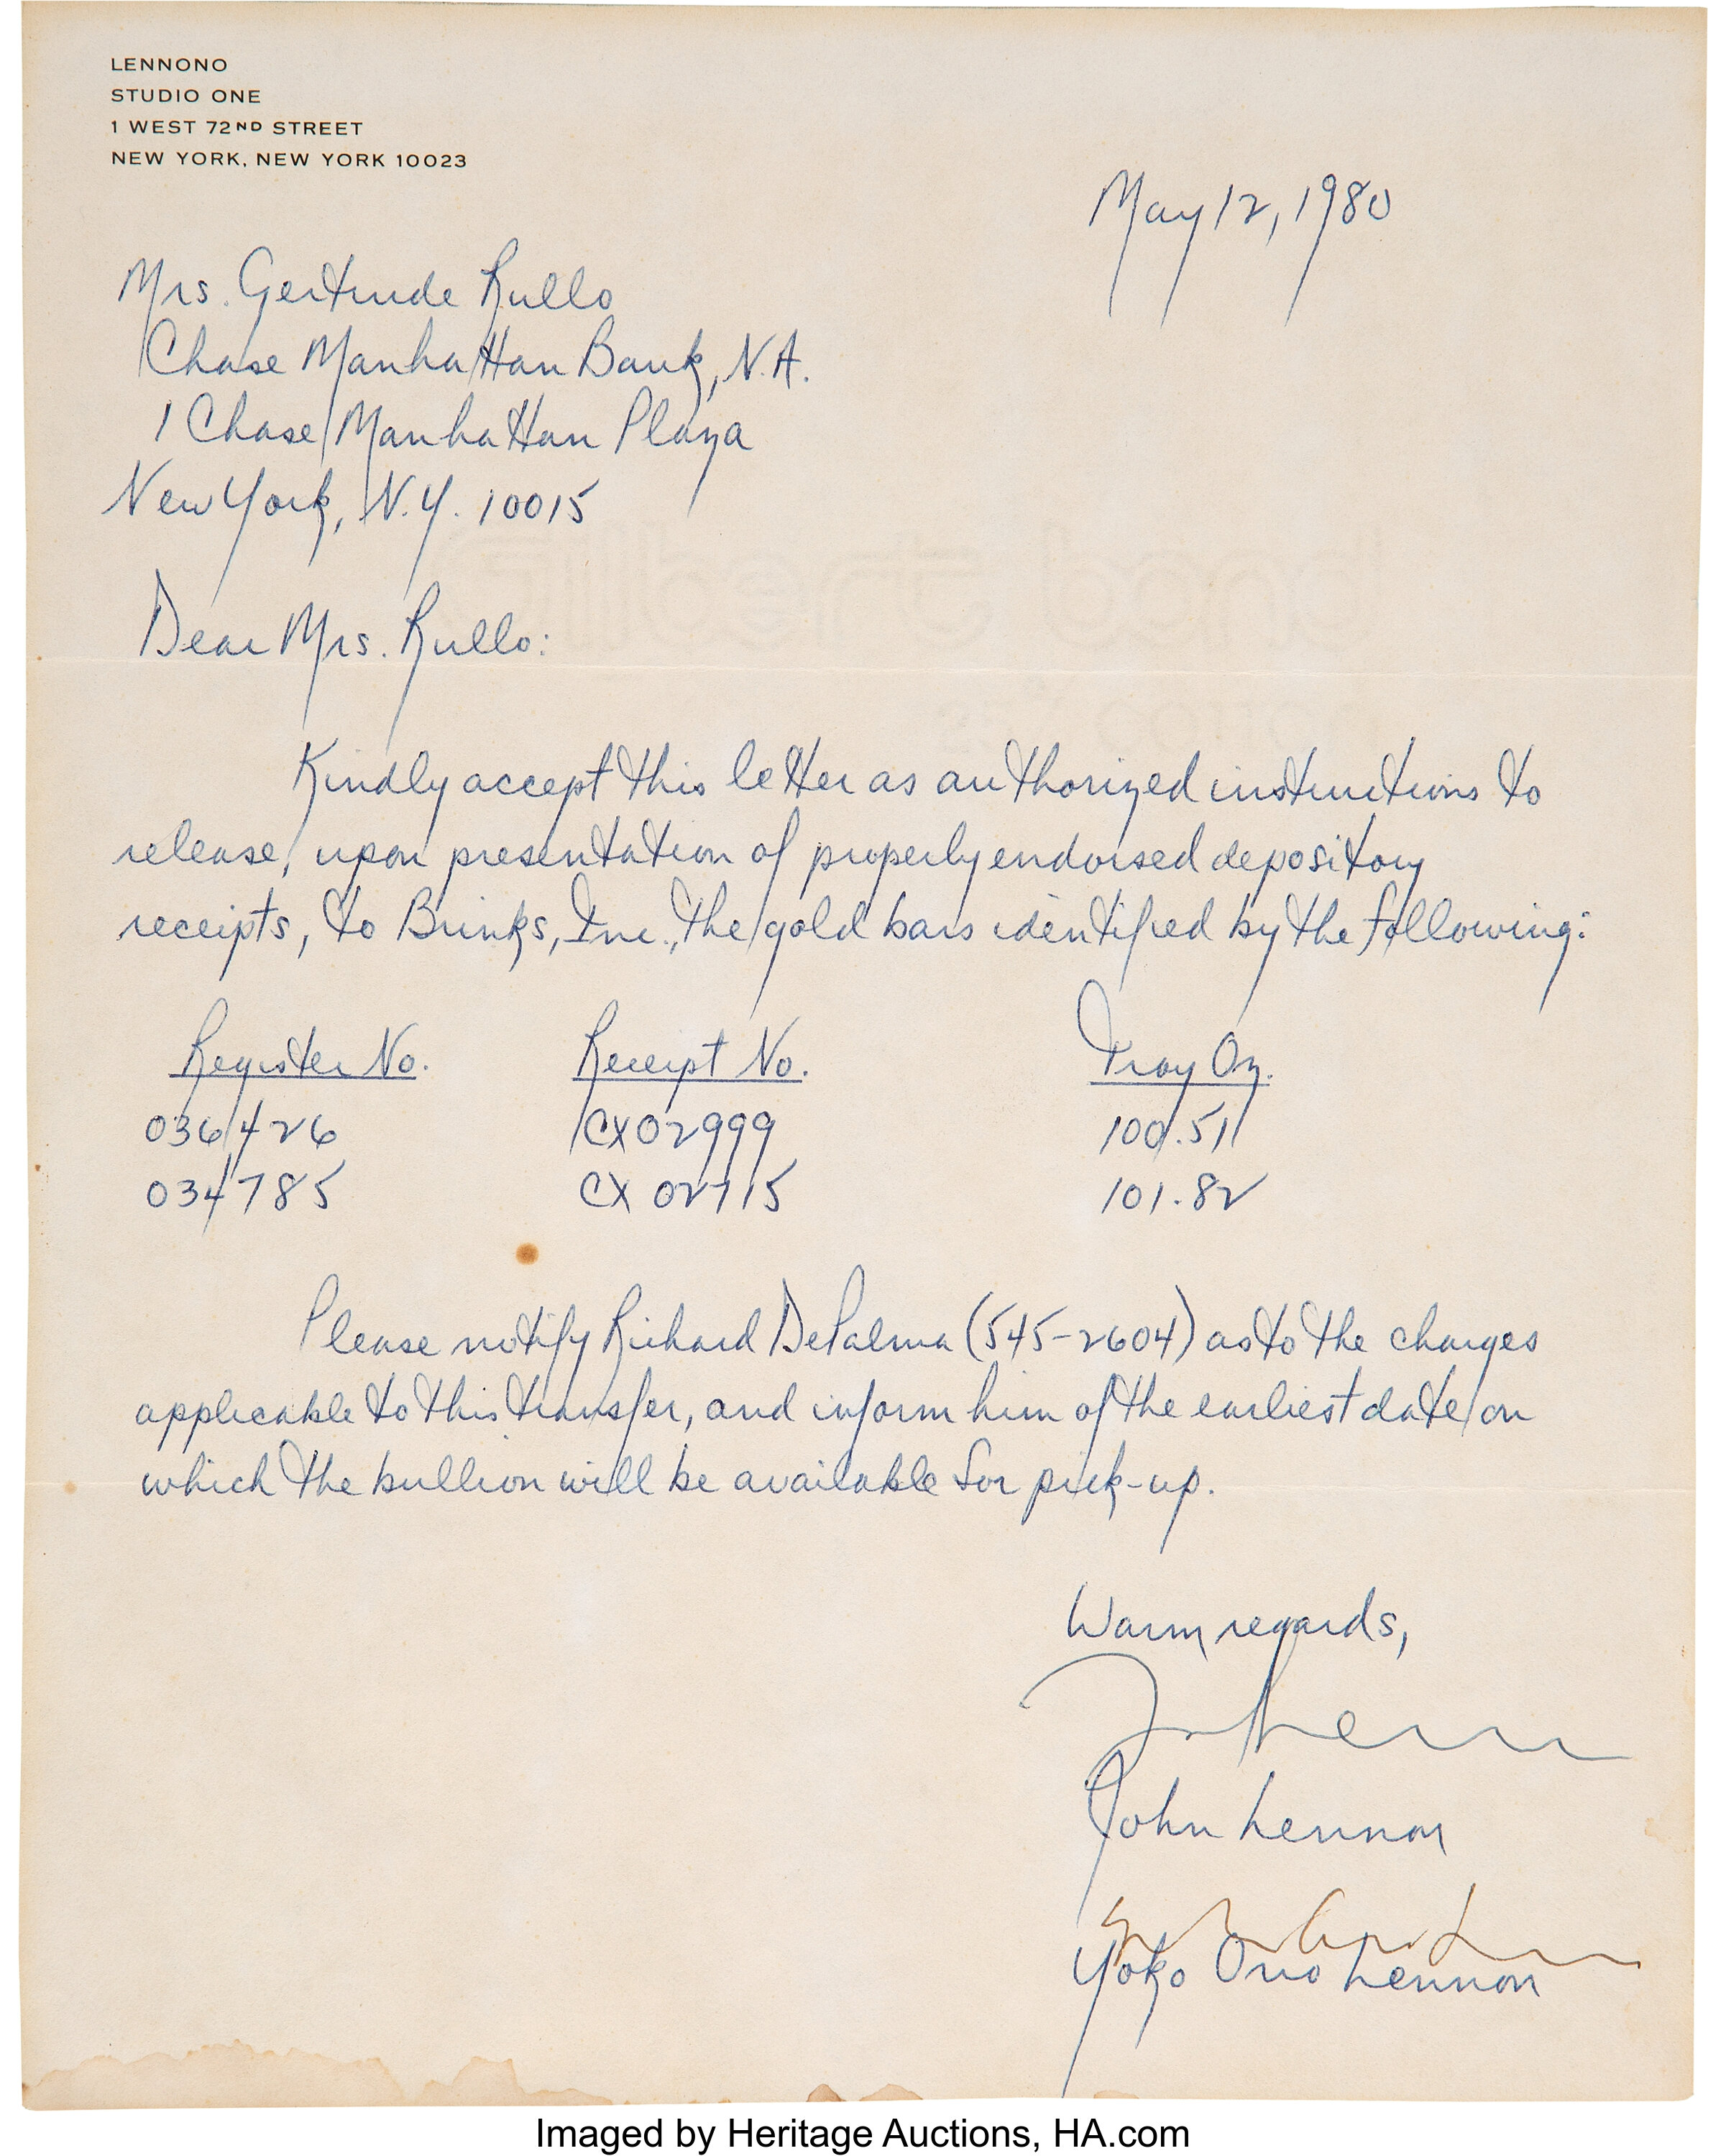 LENNONO
STUDIO ONE
1 WEST 72ND STREET
NEW YORK, NEW YORK 10023
May 12, 1980
Mrs. Gertrude Rullo
Chase Manhattan Bank, N.A.
1 Chase Manhattan Plaza
New York, N.Y. 10015
Dear Mrs. Rullo:
Kindly accept this letter as authorized instructions to
release, upon presentation of properly endorsed depository
receipts, to Brinks, Inc., the gold bars identified by the following:
Register No. Receipt No. Troy Oz.
036426 CX02999 100.511
034785 CX 02715 101.82
Please notify Richard DePalma (545-2604) as to the charges
applicable to this transfer, and inform him of the earliest date on
which the bullion will be available for pick-up.
Warm regards,
John Lennon
Yoko Ono Lennon
Imaged by Heritage Auctions, HA.com